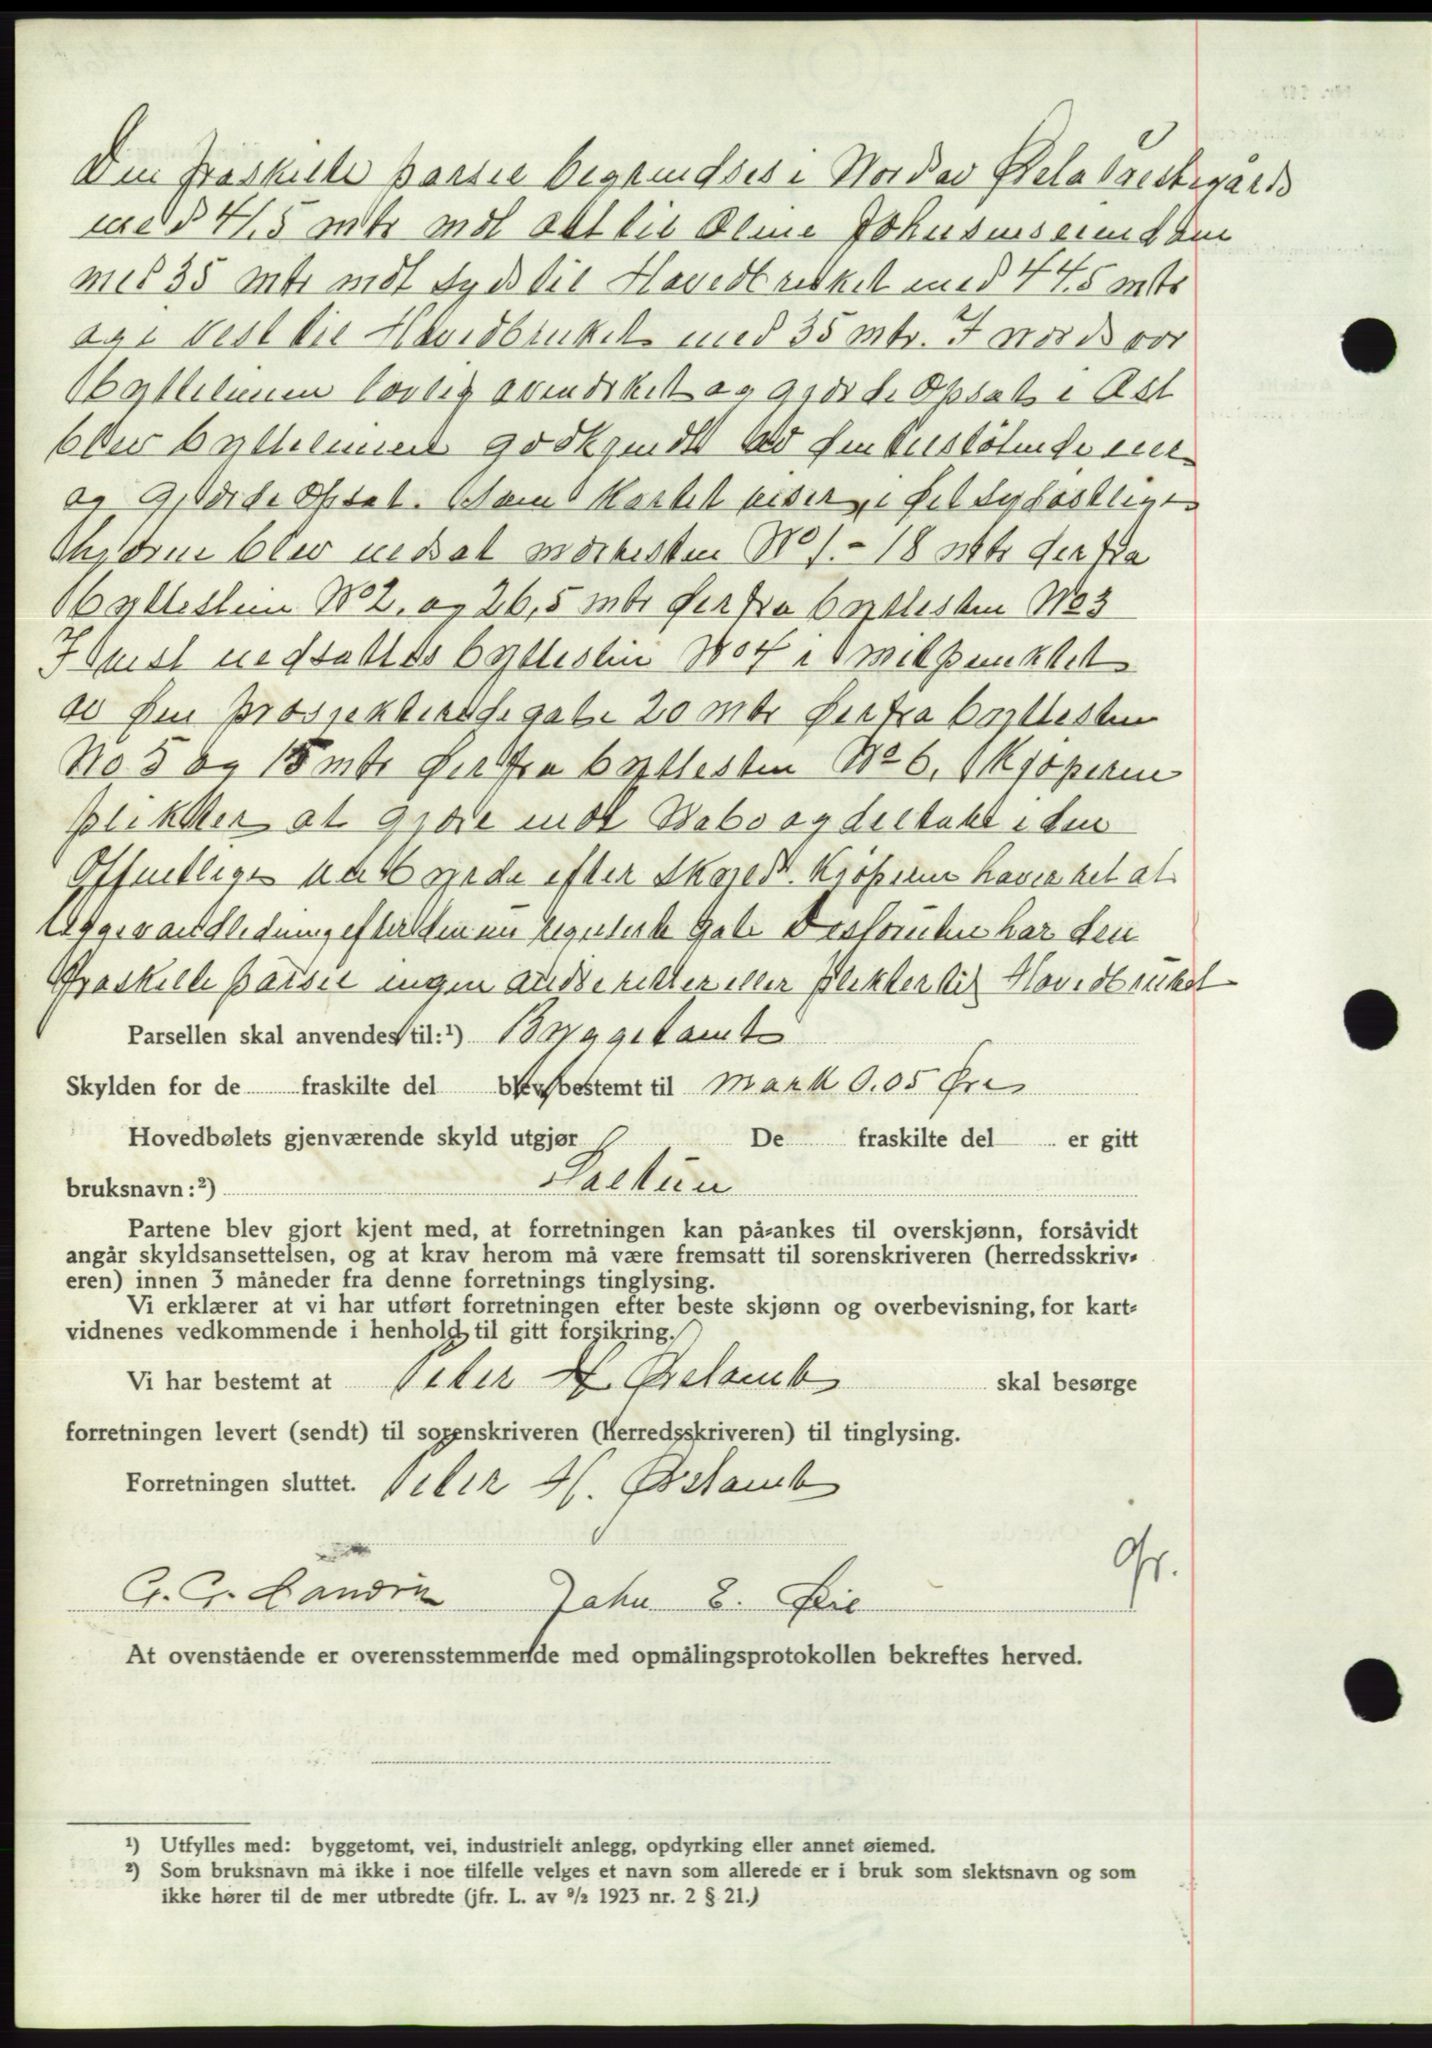 Den fraskilte parsel begrendses i Nord av Ørsta Prestegårds
med 41,5 mtr mot Øst til Oline Johnsens eiendom
med 35 mtr mot Syd til Hovedbruket med 44,5 mtr
og i vest til Hovedbruket med 35 mtr. I nord var
byttelinien lovlig avmerket og gjerde opsat i Øst
blev byttelinien godkjendt av den tilstøtende eier
og gjerde opsat. Som kartet viser, i det sydøstlige
hjørne blev nedsat merkesten No 1. - 18 mtr derfra
byttestein No 2. og 26,5 mtr derfra byttesten No 3
I vest nedsattes byttestein No 4 i mitpunktet
av den prosjekterede gate 20 mtr derfra byttesten
No 5 og 15 mtr derfra byttesten No 6. Kjøperne
plikter at gjære mot Nabo og deltake i den
Offentlige utbyrde efter skyld. Kjøperne haver ret at
legge vandledning efter den nu regulerte gate Desforuten har den
fraskilte parsel ingen andre retter eller plikter til Hovedbruket
Parsellen skal anvendes til:¹) Byggetomt
Skylden for de fraskilte del blev bestemt til mark 0.05 Øre
Hovedbølets gjenværende skyld utgjør De fraskilte del er gitt
bruksnavn:²) Saltun
Partene blev gjort kjent med, at forretningen kan på-ankes til overskjønn, forsåvidt
angår skyldsansettelsen, og at krav herom må være fremsatt til sorenskriveren (herredsskriv-
eren) innen 3 måneder fra denne forretnings tinglysing.
Vi erklærer at vi har utført forretningen efter beste skjønn og overbevisning, for kart-
vidnenes vedkommende i henhold til gitt forsikring.
Vi har bestemt at Peter H. Ørstamb skal besørge
forretningen levert (sendt) til sorenskriveren (herredsskriveren) til tinglysing.
Forretningen sluttet. Peter H. Ørstamb
gr.
G. G. John E. Øie
At ovenstående er overensstemmende med opmålingsprotokollen bekreftes herved.
¹) Utfylles med: byggetomt, vei, industrielt anlegg, opdyrking eller annet øiemed.
²) Som bruksnavn må ikke i noe tilfelle velges et navn som allerede er i bruk som slektsnavn og som
ikke hører til de mer utbredte (jfr. L. av ⁹/₂ 1923 nr. 2 § 21.)